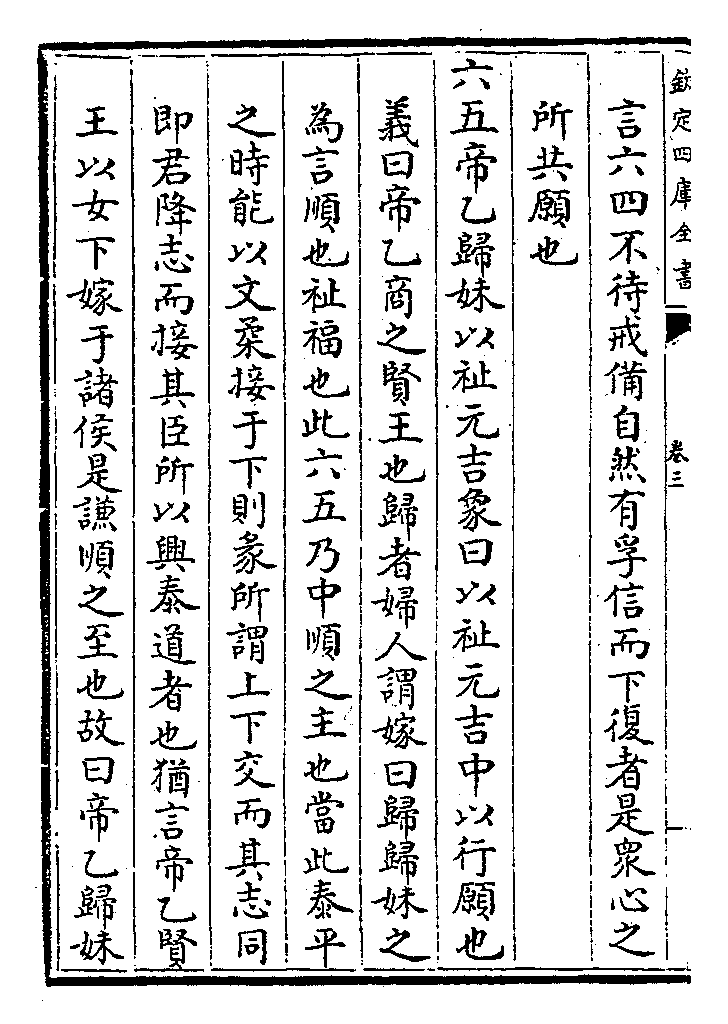 欽定四庫全書
卷三
言六四不待戒備自然有孚信而下復者是衆心之
所共願也
六五帝乙歸妹以祉元吉象曰以祉元吉中以行願也
義曰帝乙商之賢王也歸者婦人謂嫁曰歸歸妹之
為言順也祉福也此六五乃中順之主也當此泰平
之時能以文柔接于下則彖所謂上下交而其志同
即君降志而接其臣所以興泰道者也猶言帝乙賢
王以女下嫁于諸侯是謙順之至也故曰帝乙歸妹